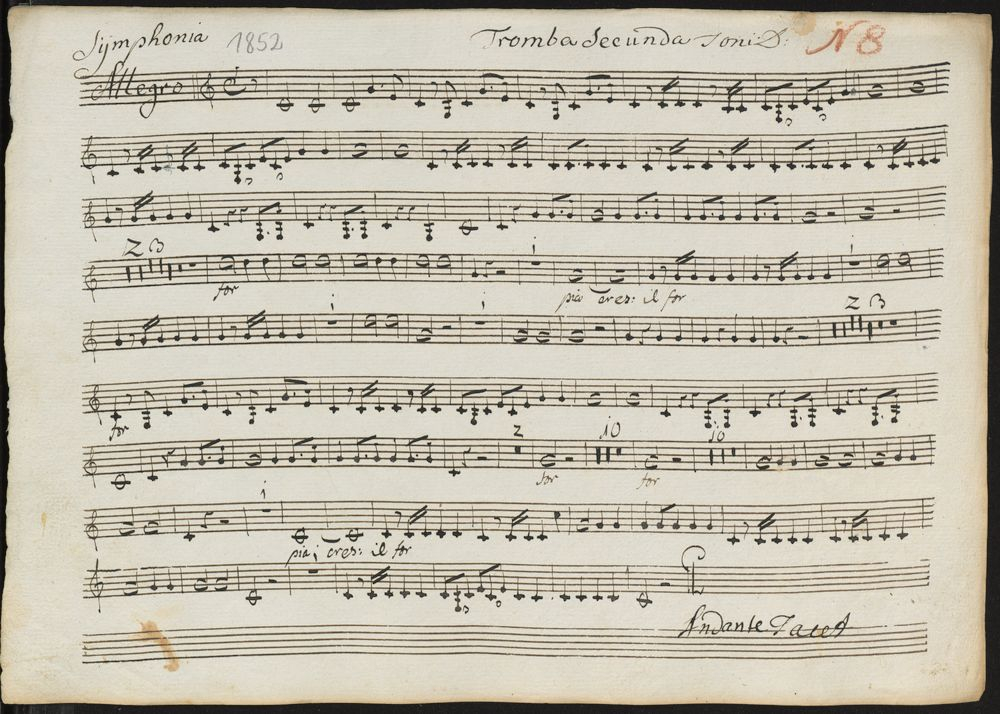 Symphonia 1852 Tromba Secunda Toni D: N 8
Allegro
2 3 1 1
for pia cres: il for
1 1 2 3
for
2 10 10
for for
1
pia; cres: il for
Andante Tacet